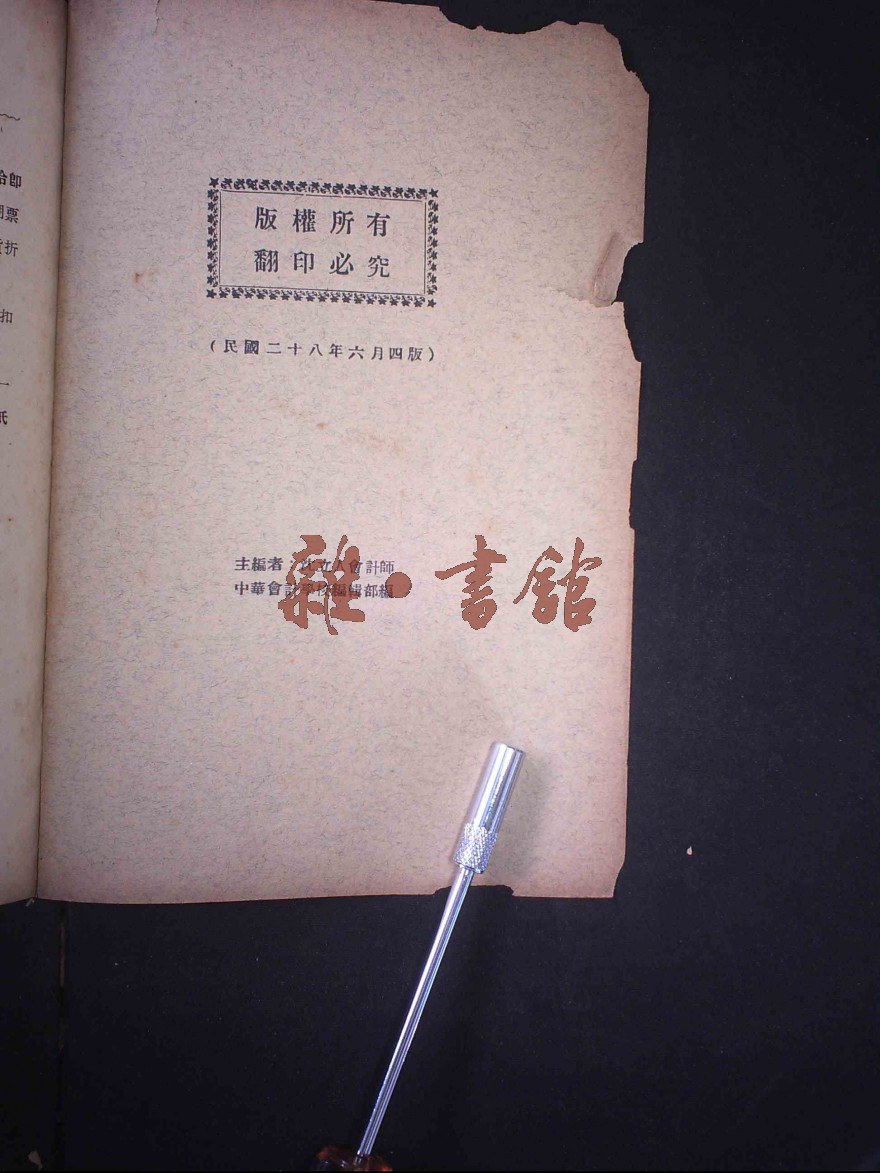 版權所有
翻印必究
(民國二十八年六月四版)
主編者：沈立人會計師
中華會計學校編輯部編
雜·書館
給卽
票
折
扣
一